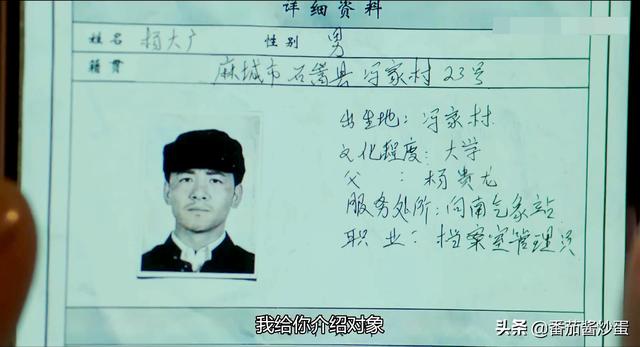 详细资料
姓名 杨大广 性别 男
籍贯 麻城市石嵩县冯家村23号
出生地：冯家村
文化程度：大学
父：杨贵龙
服务处所：向南气象站
职业：档案室管理员
我给你介绍对象
头条 @番茄酱炒蛋